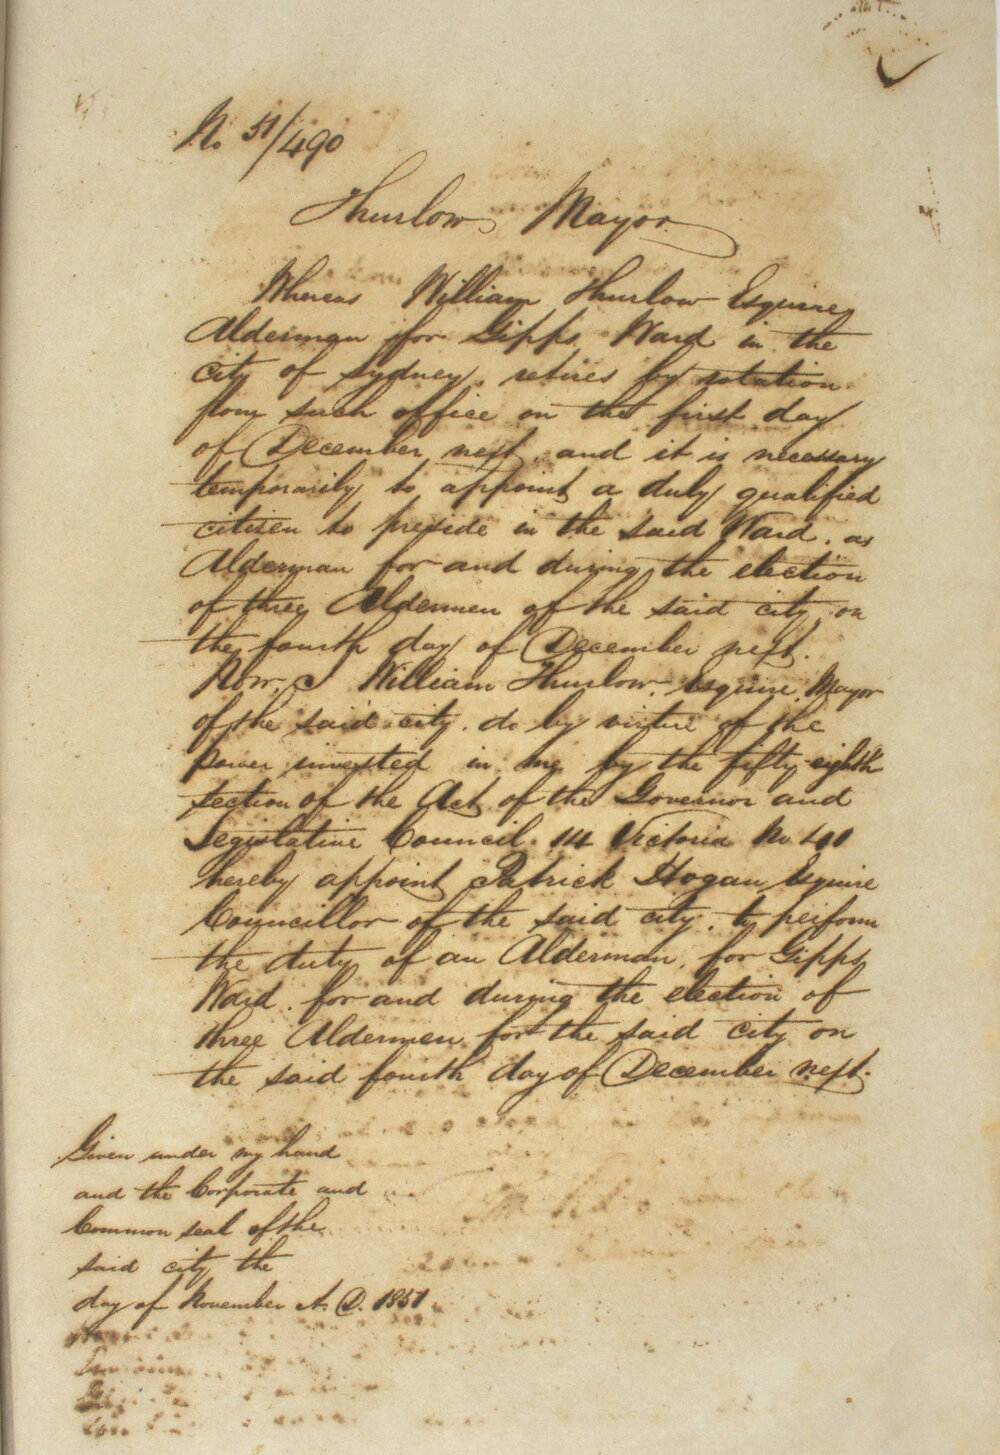 No 51/490
Thurlow Mayor
Whereas William Thurlow Esquire,
Alderman for Gipps Ward in the
city of Sydney, retires by rotation
from such office on the first day
of December next, and it is necessary
temporarily to appoint a duly qualified
citizen to preside in the said Ward, as
Alderman for and during the election
of three Aldermen of the said city, on
the fourth day of December next.
Now, I William Thurlow, Esquire, Mayor
of the said city, do by virtue of the
power invested in me by the fifty-eighth
section of the Act of the Governor and
Legislative Council 14 Victoria No 41
hereby appoint Patrick Hogan, Esquire
Councillor of the said city, to perform
the duty of an Alderman, for Gipps
Ward, for and during the election of
three Aldermen for the said city on
the said fourth day of December next.
Given under my hand
and the Corporate and
Common seal of the
said city the
day of November A. D. 1851